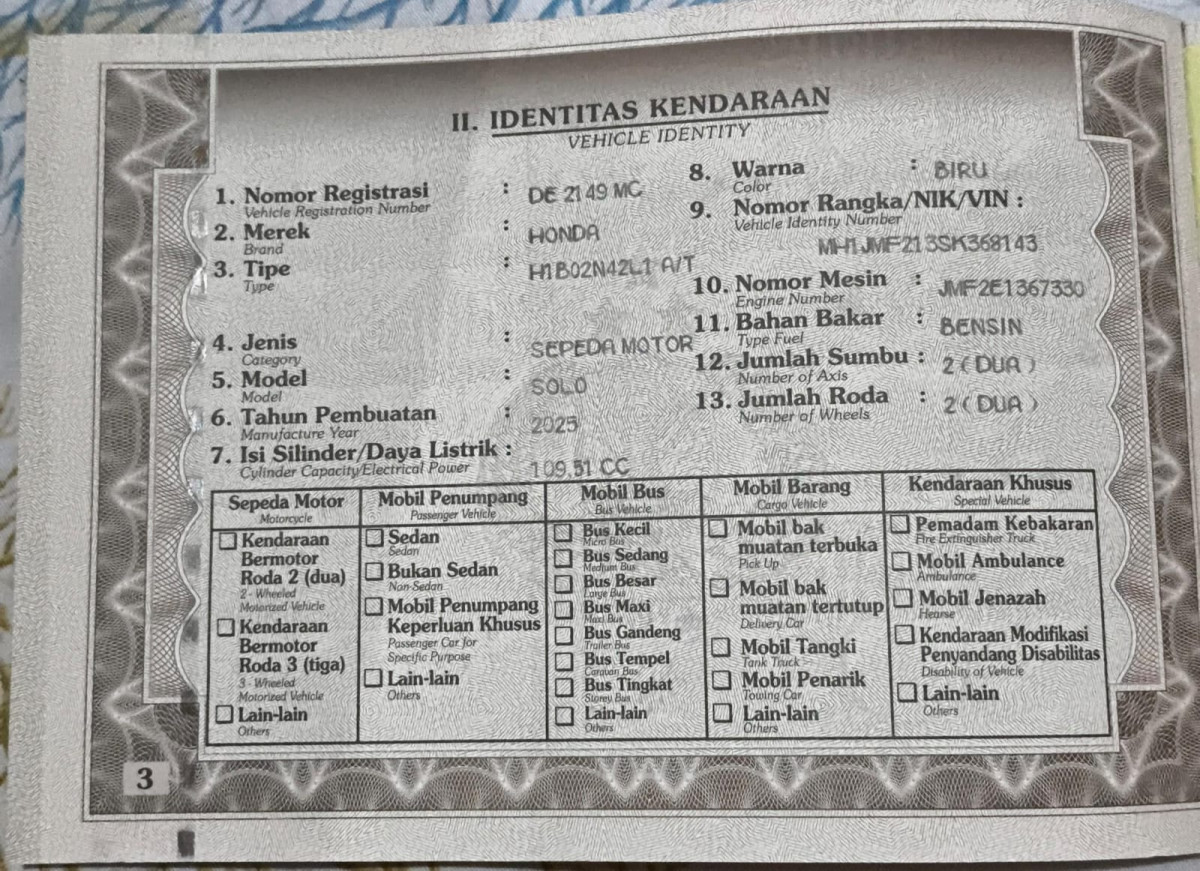 II. IDENTITAS KENDARAAN
VEHICLE IDENTITY
1. Nomor Registrasi : DE 2149 MC
Vehicle Registration Number
2. Merek : HONDA
Brand
3. Tipe : H1B02N42L1 A/T
Type
4. Jenis : SEPEDA MOTOR
Category
5. Model : SOLO
Model
6. Tahun Pembuatan : 2025
Manufacture Year
7. Isi Silinder/Daya Listrik : 109,51 CC
Cylinder Capacity/Electrical Power
8. Warna : BIRU
Color
9. Nomor Rangka/NIK/VIN :
Vehicle Identity Number
MH1JMF213SK368143
10. Nomor Mesin : JMF2E1367330
Engine Number
11. Bahan Bakar : BENSIN
Type Fuel
12. Jumlah Sumbu : 2 ( DUA )
Number of Axis
13. Jumlah Roda : 2 ( DUA )
Number of Wheels
Sepeda Motor
Motorcycle
Kendaraan
Bermotor
Roda 2 (dua)
2 - Wheeled
Motorized Vehicle
Kendaraan
Bermotor
Roda 3 (tiga)
3 - Wheeled
Motorized Vehicle
Lain-lain
Others
Mobil Penumpang
Passenger Vehicle
Sedan
Sedan
Bukan Sedan
Non-Sedan
Mobil Penumpang
Keperluan Khusus
Passenger Car for
Specific Purpose
Lain-lain
Others
Mobil Bus
Bus Vehicle
Bus Kecil
Micro Bus
Bus Sedang
Medium Bus
Bus Besar
Large Bus
Bus Maxi
Maxi Bus
Bus Gandeng
Trailer Bus
Bus Tempel
Caravan Bus
Bus Tingkat
Storey Bus
Lain-lain
Others
Mobil Barang
Cargo Vehicle
Mobil bak
muatan terbuka
Pick Up
Mobil bak
muatan tertutup
Delivery Car
Mobil Tangki
Tank Truck
Mobil Penarik
Towing Car
Lain-lain
Others
Kendaraan Khusus
Special Vehicle
Pemadam Kebakaran
Fire Extinguisher Truck
Mobil Ambulance
Ambulance
Mobil Jenazah
Hearse
Kendaraan Modifikasi
Penyandang Disabilitas
Disability of Vehicle
Lain-lain
Others
3